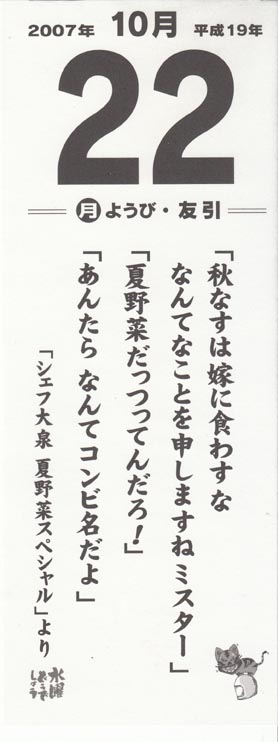 2007年 10月 平成19年
22
月ようび・友引
「秋なすは嫁に食わすな
なんてなことを申しますねミスター」
「夏野菜だっつってんだろ！」
「あんたら なんてコンビ名だよ」
「シェフ大泉 夏野菜スペシャル」より
水曜
どうで
しょう